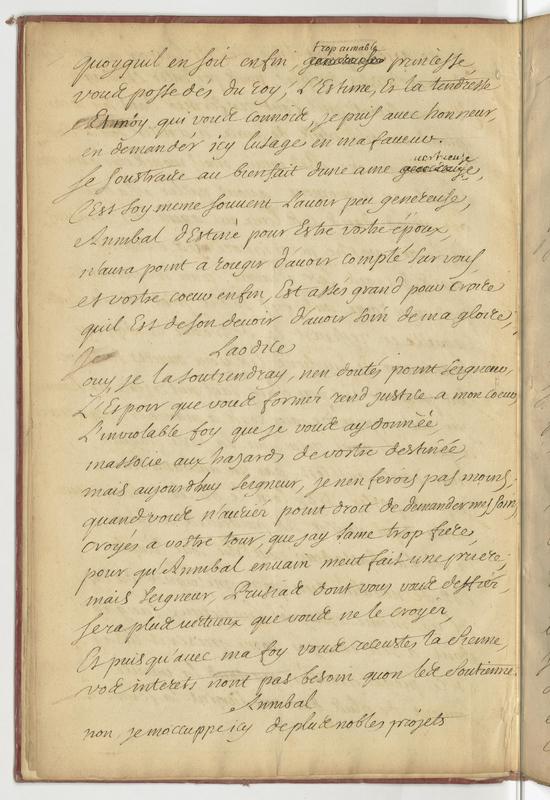 trop aimable
quoyquil en soit enfin, genereuse princesse
voud possedés du roy, L'Estime, Es la tendresse
Et moy qui voud connoid, je puis avec honneur,
en demandér icy lusage en ma faveur.
vertueuse
se soustraire au bienfait dune ame
C'est soy mesme souvent L'avoir peu genereuse,
Annibal d'Estiné pour Estre vostre époux,
n'aura point a rougir d'avoir compté sur vous
et vostre coeur enfin, Est assés grand pour croire
quil Est de son devoir d'avoir soin de ma gloire,
Laodice
ouy, je la soutiendray, nen doutés point seigneur,
L'Espoir que voud formér rend justice a mon coeur,
L'inviolable foy que je voud ay donnée
massocie aux hazards de vostre destinée
mais aujourdhuy seigneur, je nen ferois pas moins,
quand voud n'auriér point droit de demander mes soins,
Croyés a vostre tour, que jay lame trop fiere,
pour qu'Annibal envain meut fait une priere,
mais seigneur, Prusiad dont vous voud deffiér,
sera plud vertueux que voud ne le croyér,
Et puisqu'avec ma foy voud receustes la sienne,
vod interets nont pas besoin quon led soutienne.
Annibal
non, je moccuppe icy de plud nobles projets